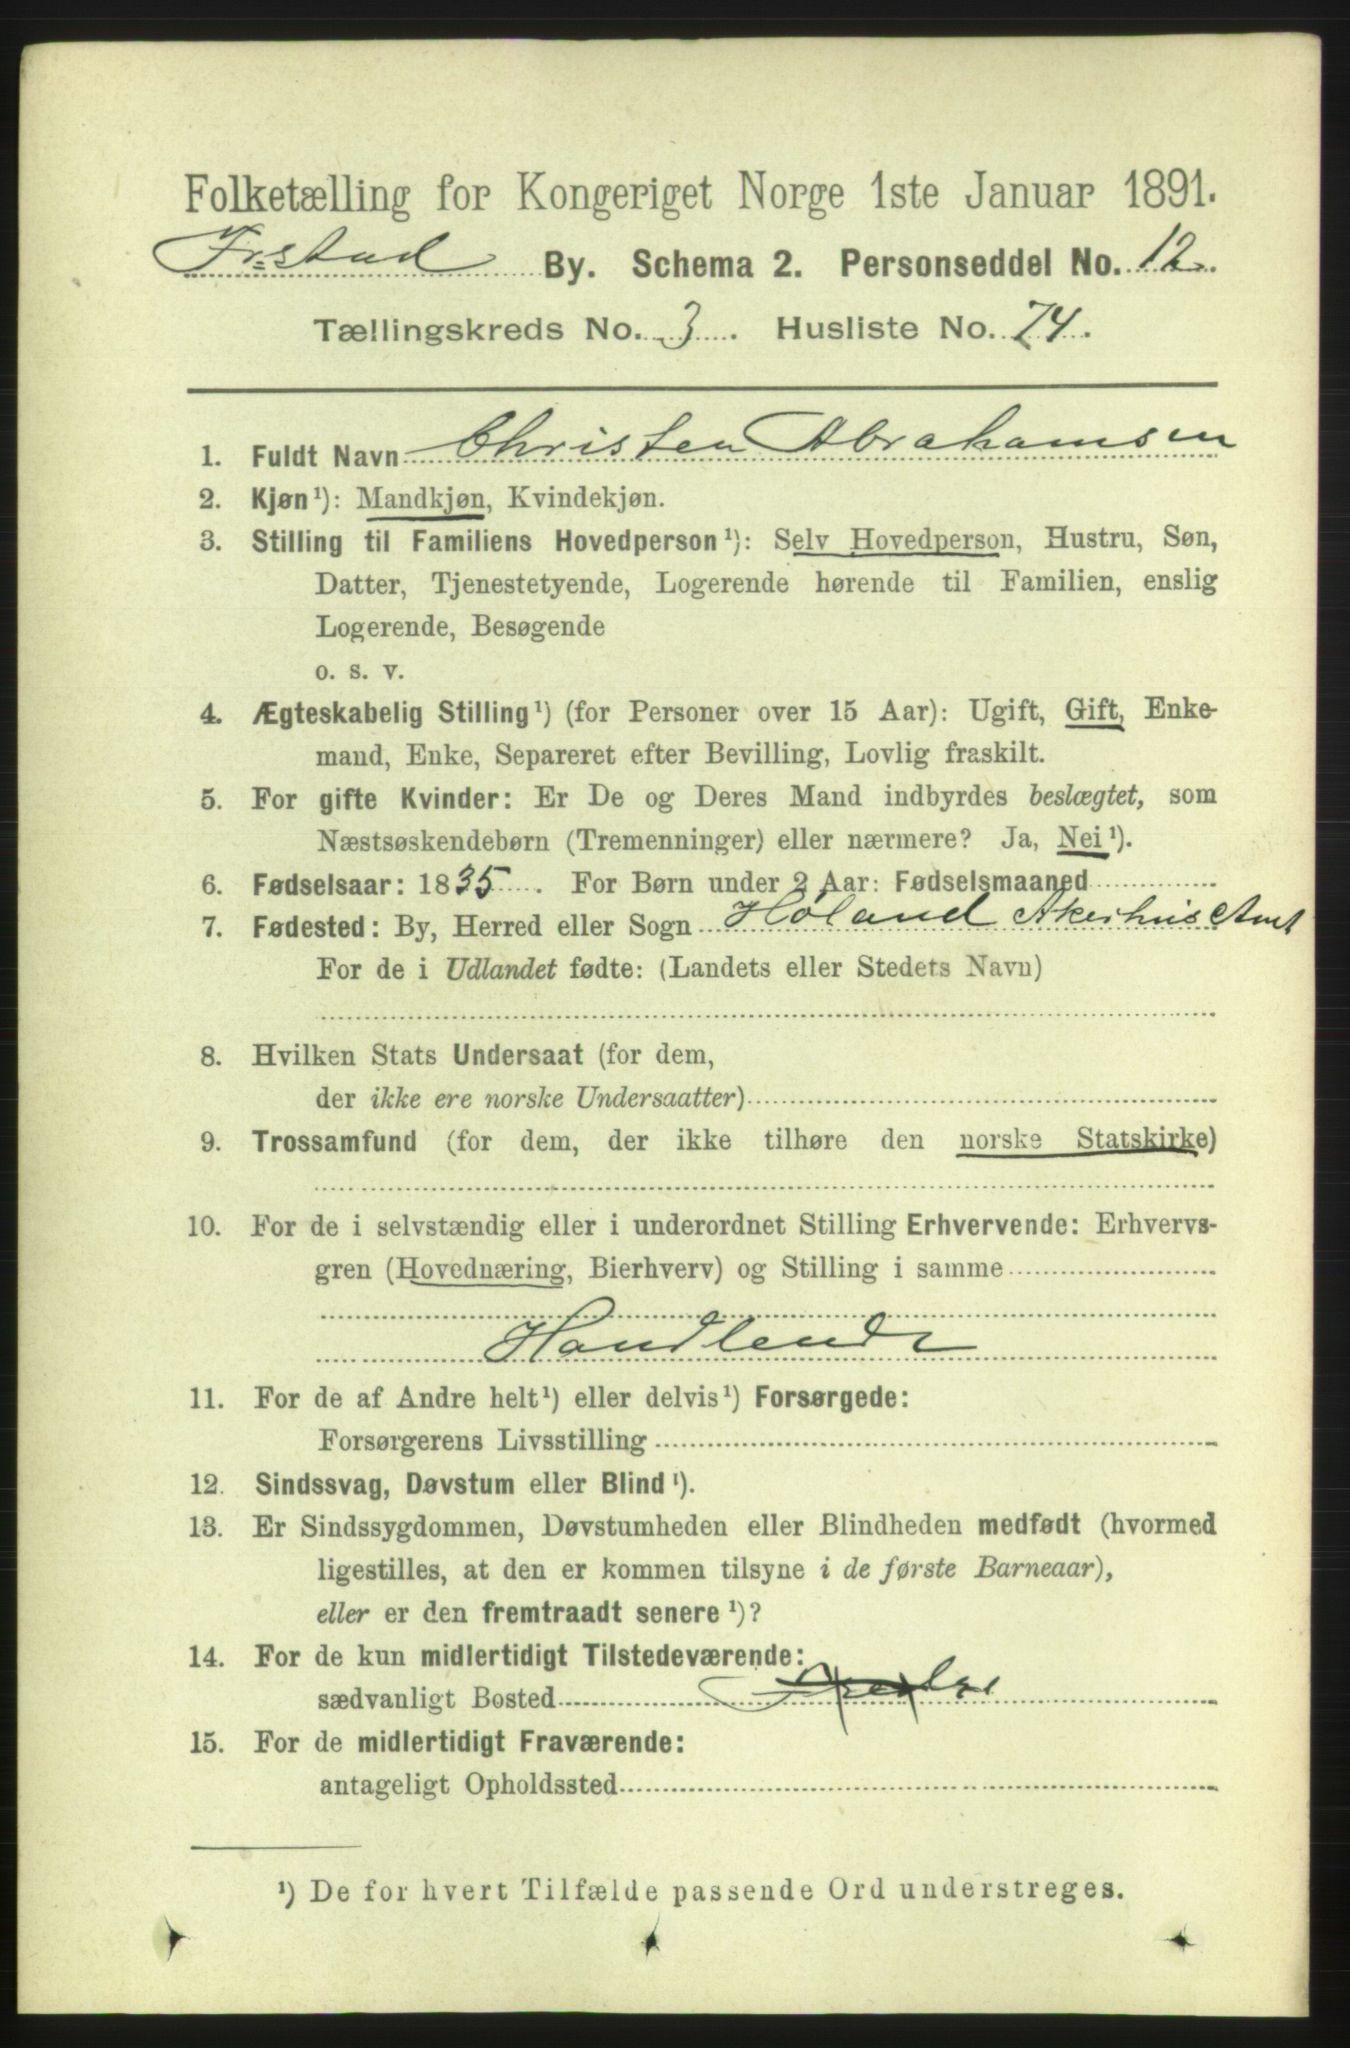 Folketælling for Kongeriget Norge 1ste Januar 1891.
Frstad By. Schema 2. Personseddel No. 12.
Tællingskreds No. 3. Husliste No. 74.
1. Fuldt Navn Christen Abrahamsen
2. Kjøn¹): Mandkjøn, Kvindekjøn.
3. Stilling til Familiens Hovedperson¹): Selv Hovedperson, Hustru, Søn,
Datter, Tjenestetyende, Logerende hørende til Familien, enslig
Logerende, Besøgende
o. s. v.
4. Ægteskabelig Stilling¹) (for Personer over 15 Aar): Ugift, Gift, Enke-
mand, Enke, Separeret efter Bevilling, Lovlig fraskilt.
5. For gifte Kvinder: Er De og Deres Mand indbyrdes beslægtet, som
Næstsøskendebørn (Tremenninger) eller nærmere? Ja, Nei¹).
6. Fødselsaar: 1835. For Børn under 2 Aar: Fødselsmaaned
7. Fødested: By, Herred eller Sogn Høland Akerhus Amt
For de i Udlandet fødte: (Landets eller Stedets Navn)
8. Hvilken Stats Undersaat (for dem,
der ikke ere norske Undersaatter)
9. Trossamfund (for dem, der ikke tilhøre den norske Statskirke)
10. For de i selvstændig eller i underordnet Stilling Erhvervende: Erhvervs-
gren (Hovednæring, Bierhverv) og Stilling i samme
Handlende
11. For de af Andre helt¹) eller delvis¹) Forsørgede:
Forsørgerens Livsstilling
12. Sindssvag, Døvstum eller Blind¹).
13. Er Sindssygdommen, Døvstumheden eller Blindheden medfødt (hvormed
ligestilles, at den er kommen tilsyne i de første Barneaar),
eller er den fremtraadt senere¹)?
14. For de kun midlertidigt Tilstedeværende:
sædvanligt Bosted
15. For de midlertidigt Fraværende:
antageligt Opholdssted
¹) De for hvert Tilfælde passende Ord understreges.